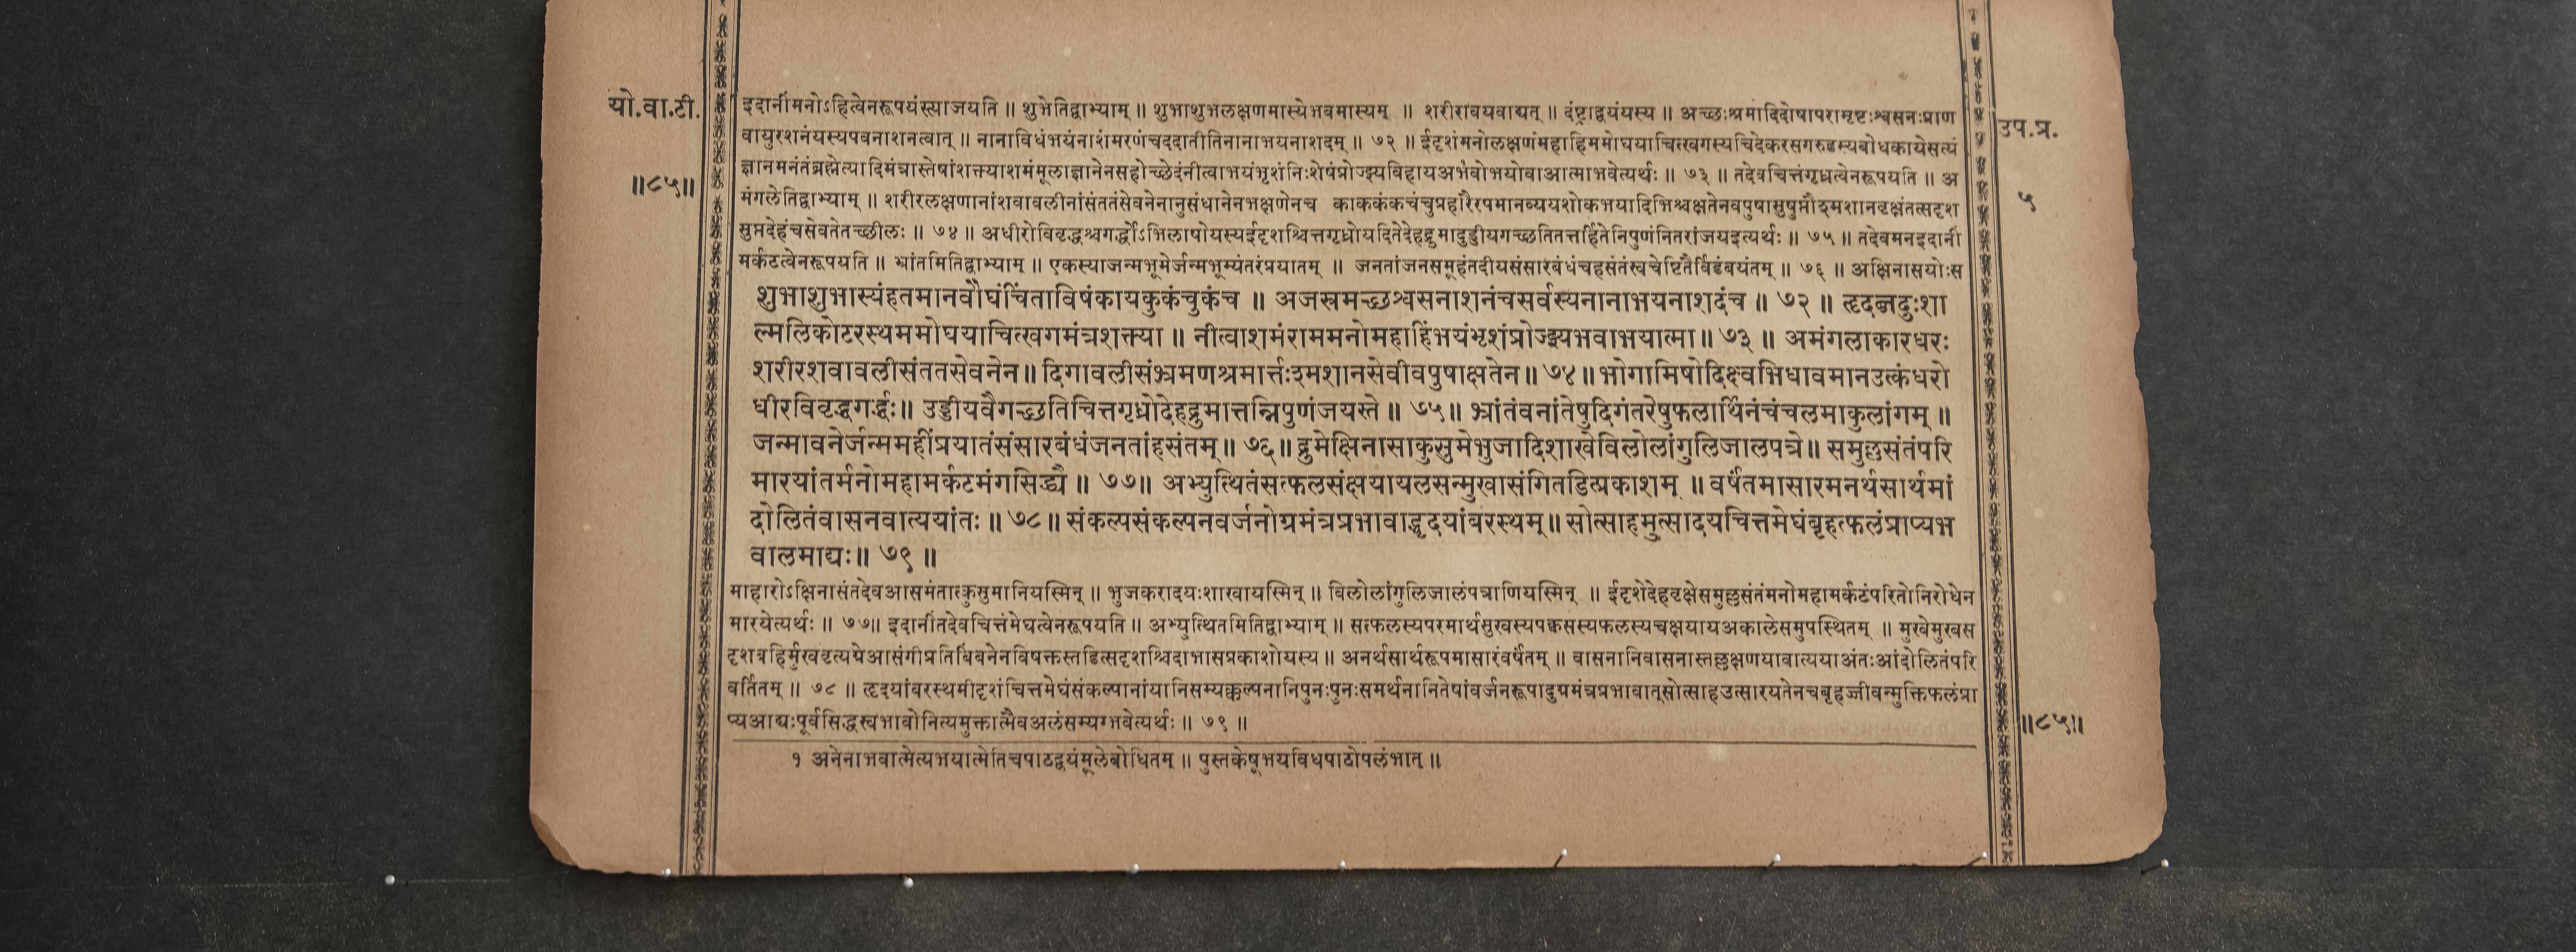 यो.वा.टी.
॥८५॥
उप.प्र.
५
इदानींमनोऽहित्वेनरूपयंस्त्याजयति ॥ शुभेतिद्वाभ्याम् ॥ शुभाशुभलक्षणमास्येभवमास्यम् ॥ शरीरावयवाद्यत् ॥ दंष्ट्राद्वयंयस्य ॥ अच्छःश्रमादिदोषापरामृष्टःश्वसनःप्राण
वायुरशनंयस्यपवनाशनत्वात् ॥ नानाविधंभयंनाशंमरणंचददातीतिनानाभयनाशदम् ॥ ७२ ॥ ईदृशंमनोलक्षणंमहाहिममोघयाचित्खगस्यचिदेकरसगरुडस्यबोधकायेसत्यं
ज्ञानमनंतंब्रह्मेत्यादिमंत्रास्तेषांशक्त्याशमंमूलाज्ञानेनसहोच्छेदंनीत्वाभयंभृशंनिःशेषंप्रोज्झ्यविहायअभवोभयोवाआत्माभवेत्यर्थः ॥ ७३ ॥ तदेवचित्तंगृध्रत्वेनरूपयति ॥ अ
मंगलेतिद्वाभ्याम् ॥ शरीरलक्षणानांशवावलीनांसंततंसेवनेनानुसंधानेनभक्षणेनच काककंकचंचुप्रहारैरपमानव्ययशोकभयादिभिश्चक्षतेनवपुषासुषुप्तौश्मशानवृक्षंतत्सदृश
सुप्तदेहंचसेवतेतच्छीलः ॥ ७४ ॥ अधीरोविवृद्धश्चगर्द्धोऽभिलाषोयस्यईदृशश्चित्तगृध्रोयदितेदेहद्रुमादुड्डीयगच्छतितत्तर्हितेनिपुणंनितरांजयइत्यर्थः ॥ ७५ ॥ तदेवमनइदानीं
मर्कटत्वेनरूपयति ॥ भ्रांतमितिद्वाभ्याम् ॥ एकस्याजन्मभूमेर्जन्मभूम्यंतरंप्रयातम् ॥ जनतांजनसमूहंतदीयसंसारबंधंचहसंतंस्वचेष्टितैर्विडंबयंतम् ॥ ७६ ॥ अक्षिनासयोःस
शुभाशुभास्यंहतमानवौघंचिंताविषंकायकुकंचुकंच ॥ अजस्रमच्छश्वसनाशनंचसर्वस्यनानाभयनाशदंच ॥ ७२ ॥ हृदब्जदुःशा
ल्मलिकोटरस्थममोघयाचित्खगमंत्रशक्त्या ॥ नीत्वाशमंराममनोमहाहिंभयंभृशंप्रोज्झ्यभवाभयात्मा ॥ ७३ ॥ अमंगलाकारधरः
शरीरशवावलीसंततसेवनेन ॥ दिगावलीसंभ्रमणश्रमार्त्तःश्मशानसेवीवपुषाक्षतेन ॥ ७४ ॥ भोगामिषोदिक्ष्वभिधावमानउत्कंधरो
धीरविवृद्धगर्द्धः ॥ उड्डीयवैगच्छतिचित्तगृध्रोदेहद्रुमात्तन्निपुणंजयस्ते ॥ ७५ ॥ भ्रांतंवनांतेषुदिगंतरेषुफलार्थिनंचंचलमाकुलांगम् ॥
जन्मावनेर्जन्ममहींप्रयातंसंसारबंधंजनतांहसंतम् ॥ ७६ ॥ द्रुमेक्षिनासाकुसुमेभुजादिशाखेविलोलांगुलिजालपत्रे ॥ समुल्लसंतंपरि
मारयांतर्मनोमहामर्कटमंगसिद्ध्यै ॥ ७७ ॥ अभ्युत्थितंसत्फलसंक्षयायलसन्मुखासंगितडित्प्रकाशम् ॥ वर्षंतमासारमनर्थसार्थमां
दोलितंवासनवात्ययांतः ॥ ७८ ॥ संकल्पसंकल्पनवर्जनोग्रमंत्रप्रभावाद्धृदयांबरस्थम् ॥ सोत्साहमुत्सादयचित्तमेघंबृहत्फलंप्राप्यभ
वालमाद्यः ॥ ७९ ॥
माहारोऽक्षिनासंतदेवआसमंतात्कुसुमानियस्मिन् ॥ भुजकरादयःशाखायस्मिन् ॥ विलोलांगुलिजालंपत्राणियस्मिन् ॥ ईदृशेदेहवृक्षेसमुल्लसंतंमनोमहामर्कटंपरितोनिरोधेन
मारयेत्यर्थः ॥ ७७ ॥ इदानींतदेवचित्तंमेघत्वेनरूपयति ॥ अभ्युत्थितमितिद्वाभ्याम् ॥ सत्फलस्यपरमार्थसुखस्यपक्वसस्यफलस्यचक्षयायअकालेसमुपस्थितम् ॥ मुखेमुखस
दृशबहिर्मुखवृत्त्यग्रेआसंगीप्रतिबिंबनेनविषक्तस्तडित्सदृशश्चिदाभासप्रकाशोयस्य ॥ अनर्थसार्थरूपमासारंवर्षंतम् ॥ वासनानिवासनास्तल्लक्षणयावात्ययाअंतःआंदोलितंपरि
वर्तितम् ॥ ७८ ॥ हृदयांबरस्थमीदृशंचित्तमेघंसंकल्पानांयानिसम्यक्कल्पनानिपुनःपुनःसमर्थनानितेषांवर्जनरूपादुग्रमंत्रप्रभावात्सोत्साहउत्सारयतेनचबृहज्जीवन्मुक्तिफलंप्रा
प्यआद्यःपूर्वसिद्धस्वभावोनित्यमुक्तात्मैवअलंसम्यग्भवेत्यर्थः ॥ ७९ ॥
॥८५॥
१ अनेनाभवात्मेत्यभयात्मेतिचपाठद्वयंमूलेबोधितम् ॥ पुस्तकेषूभयविधपाठोपलंभात् ॥